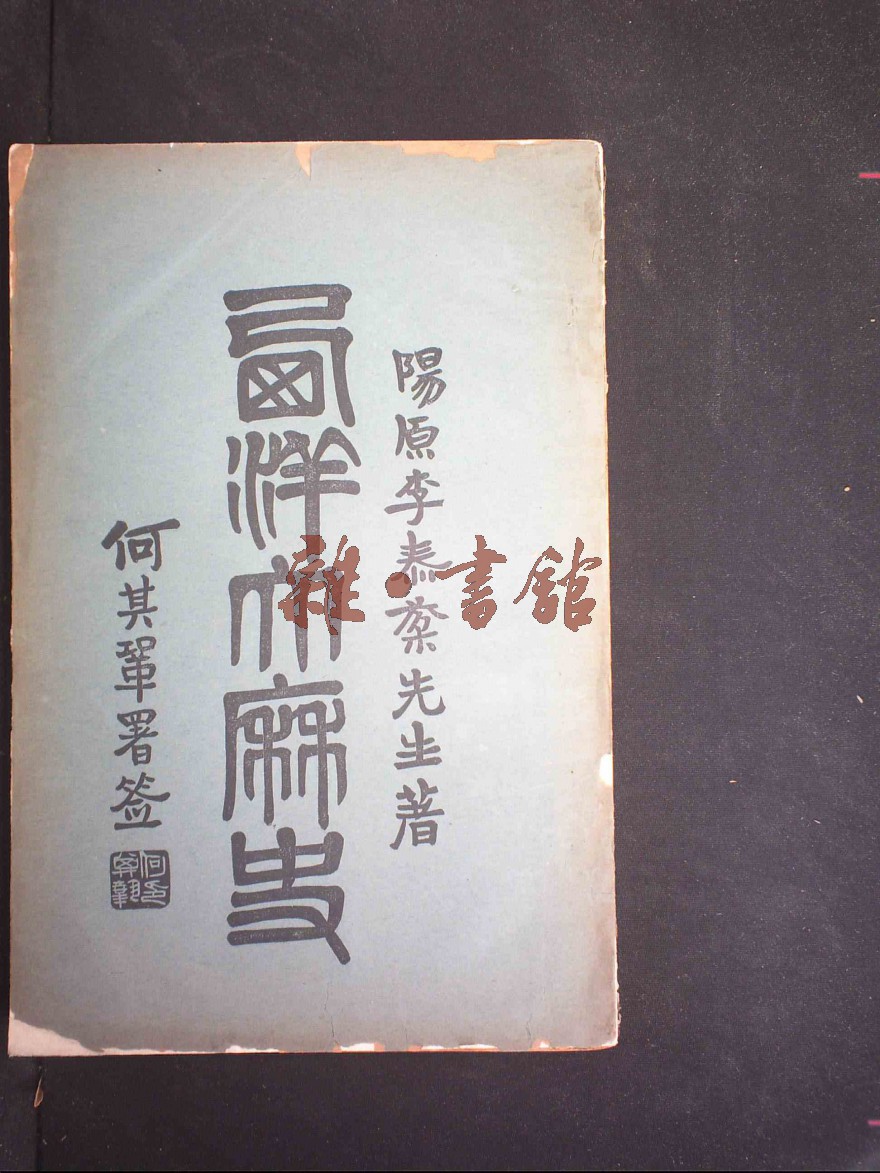 陽原李泰棻先生著
西洋大厤史
何其鞏署签
何印其鞏
雜·書館